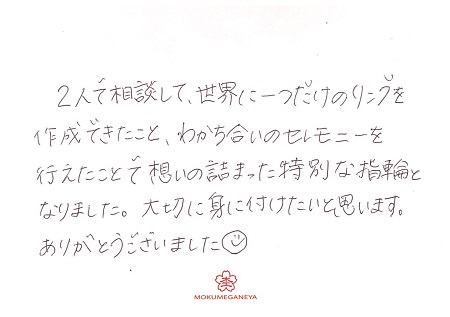 2人で相談して、世界に一つだけのリングを
作成できたこと、わかち合いのセレモニーを
行えたことで想いの詰まった特別な指輪と
なりました。大切に身に付けたいと思います。
ありがとうございました☺
MOKUMEGANEYA